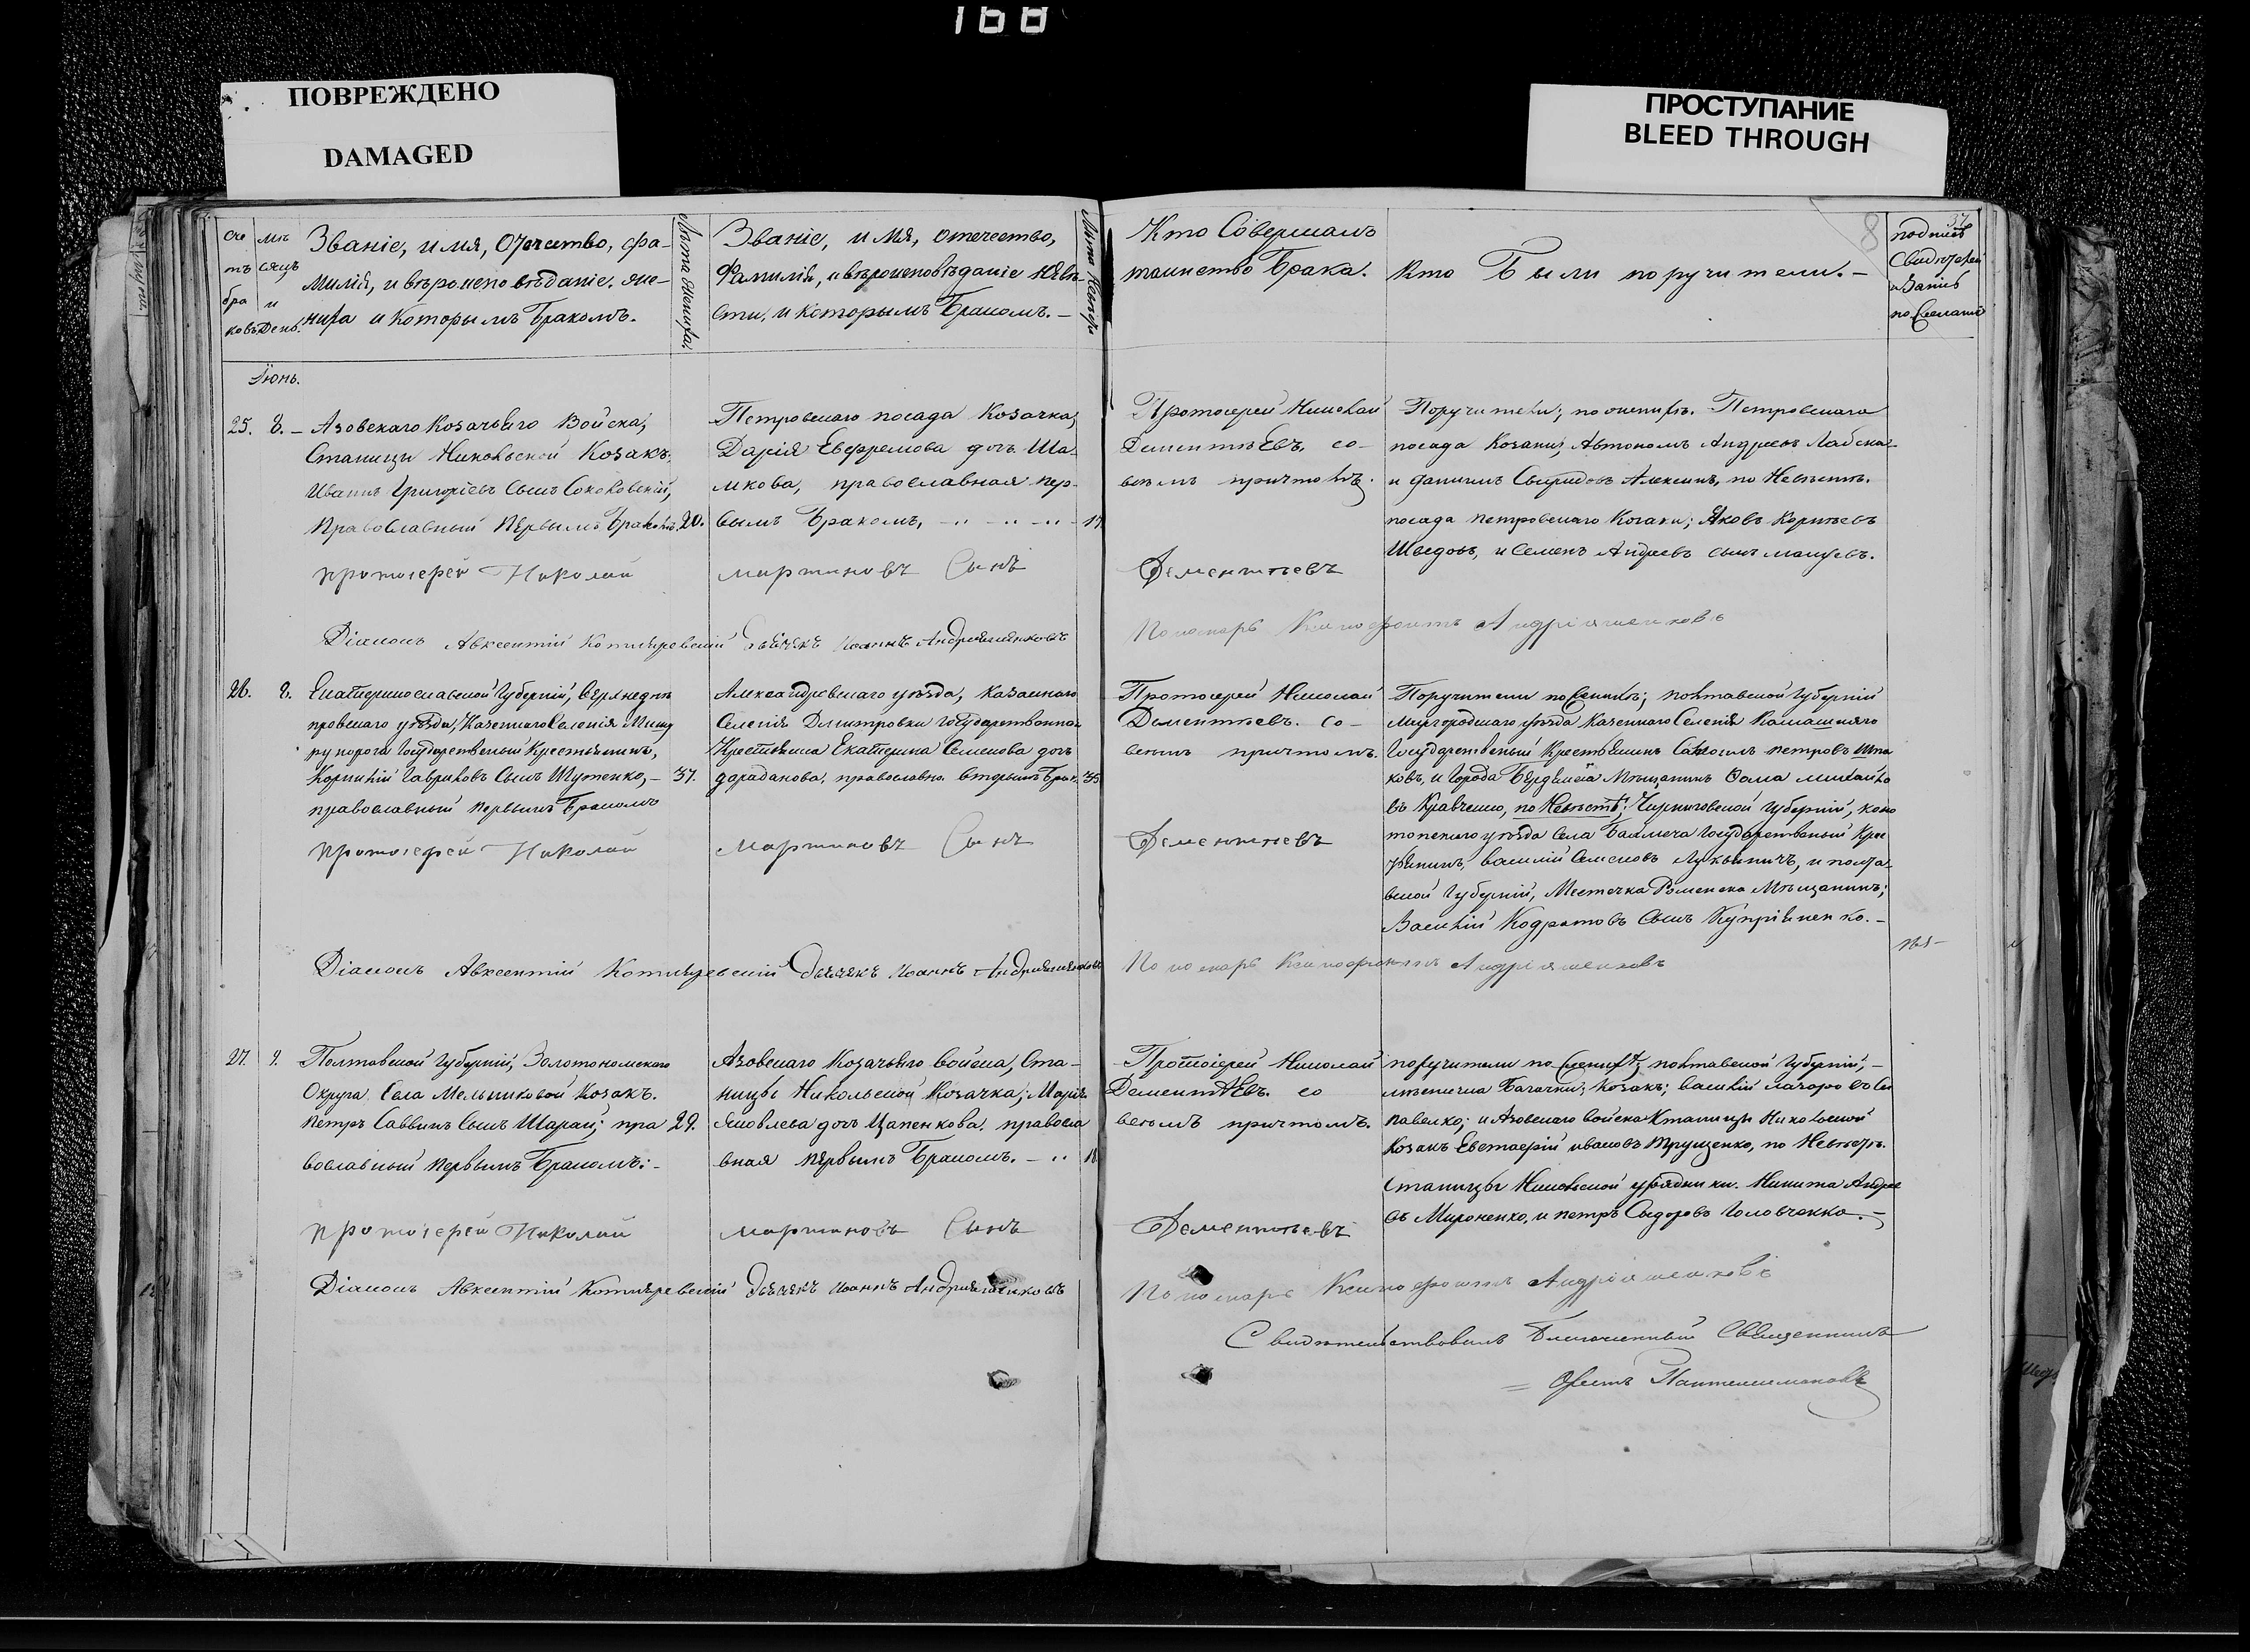 166
ПОВРЕЖДЕНО
DAMAGED
ПРОСТУПАНИЕ
BLEED THROUGH
Сче
тъ
бра
ковъ
мѣ
сяцъ
и
День.
Званіе, имя, Отечество, фа-
милія, и вѣроисповѣданіе. же-
ниха и Которымъ Бракомъ.
Лѣта Жениха.
Званіе, имя, отечество,
Фамилія, и вѣроисповѣданіе невѣ-
сты, и которымъ Бракомъ. –
Лѣта Невѣсты
Кто Совершалъ
таинство Брака.
Кто Были поручители. –
8
37
подпись
Свидѣтелей
по Желанію
Іюнь.
25. 8. – Азовскаго Козачьяго Войска,
Станицы Никольской Козакъ,
Иванъ Григоріевъ Сынъ Соколовскій,
Православный Первымъ Бракомъ. 20.
Петровскаго посада Козачка,
Дарія Евфремова дочь Ша-
мкова, православная пер-
вымъ Бракомъ, 17
Протоіерей Николай
Дементьевъ. со-
всемъ причтомъ.
Поручители; по женихѣ. Петровскаго
посада Козаки; Автономъ Андреевъ
и Данилъ Свиридовъ Алексинъ, по Невѣстѣ.
посада Петровскаго Козаки; Яковъ
Шведовъ, и Семенъ Андреевъ сынъ
протоіерей Николай Мартиновъ Сынъ Дементьевъ
Діаконъ Авксентій Котляревскій Дьячекъ Іоаннъ Андріяшенковъ
Пономарь Ксенофонтъ Андріяшенковъ
26. 8. Екатеринославской Губерніи, Верхнеднѣ
провскаго уѣзда, Казеннаго Селенія Мишу
рурога Государственый Крестьянинъ,
Корнилій Гавриловъ Сынъ Шутенко, – 37.
православный первымъ Бракомъ
Александровскаго уѣзда, казеннаго
Селенія Дмитровки Государственна
Крестьянка Екатерина Семенова дочь
дараданова, православна. вторымъ Брак. 35
Протоіерей Николай
Дементьевъ. Со-
всемъ причтомъ.
Поручители по Женихѣ; полтавской Губерніи
Миргородскаго уѣзда казеннаго Селенія
Государственый Крестьянинъ петровъ
ковъ, и Города Бердянска Мѣщанинъ Ѳома михайло
въ Кравченко, по Невѣстѣ; Черниговской Губерніи, коно
топскаго уѣзда Села Бахмача Государственый Крес
тьянинъ, василій Семеновъ и полта-
вской Губерніи, Местечка Роменска Мѣщанинъ;
Василій Кодратовъ Сынъ Купріяненко. –
протоіерей Николай Мартиновъ Сынъ Дементьевъ
Діаконъ Авксентій Котляревскій Дьячекъ Іоаннъ Андріяшенковъ
Пономарь Ксенофонтъ Андріяшенковъ
27. 9. Полтавской Губерніи, Золотоношскаго
Округа Села Мельниковой Козакъ.
Петръ Саввинъ Сынъ Шарай; пра 29.
вославный первымъ Бракомъ: -
Азовскаго Козачьяго войска, Ста-
ницы Никольской Козачка; Марія
Яковлева дочь Цапенкова. правосла
вная первымъ Бракомъ. – 18
Протоіерей Николай
Дементьевъ. со
всемъ причтомъ.
поручители по Женихѣ; полтавской Губерніи, –
мѣстечка Багачки; Козакъ; василій
павелко; и Азовскаго войска станицы Никольской
Козакъ Евстафій ивановъ Трущенко, по Невѣстѣ.
Станицы Никольской урядники. Никита Андрее
въ Мироненко, и петръ Сидоровъ Головченко. –
протоіерей Николай Мартиновъ Сынъ Дементьевъ
Діаконъ Авксентій Котляревскій Дьячекъ Іоаннъ Андріяшенковъ
Пономарь Ксенофонтъ Андріяшенковъ
Свидѣтельствовалъ Благочинный Священникъ